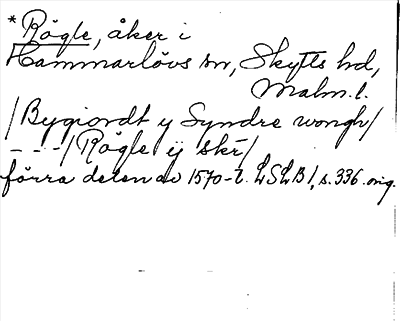 * Rögle, åker i
Hammarlövs sn, Skytts hd,
Malm.l.
/Bygiordt y Syndre wongh/
- - -/Rögle ij skr/
förra delen av 1570-t. LSLB1, s.336. orig.